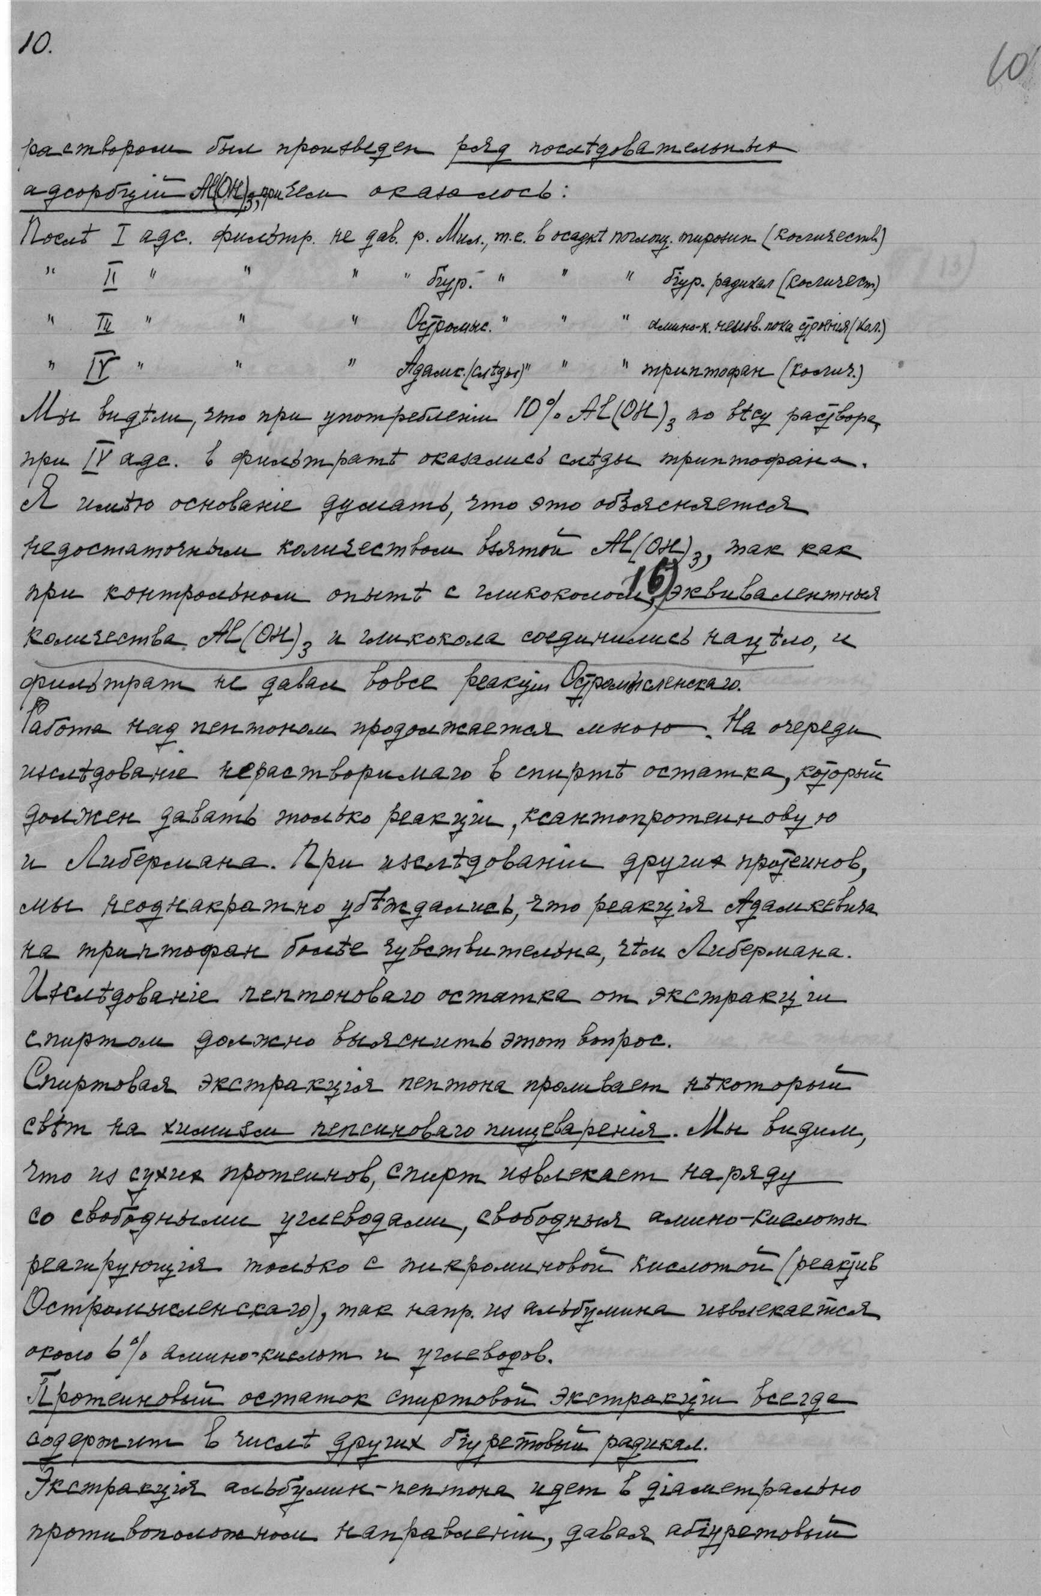 10.
10
раствором был произведен ряд послѣдовательных
адсорбцій Al(OH)3, причем оказалось:
Послѣ I адс. фильтр. не дав. р. Мил., т.е. в осадкѣ поглощ. тирозин (количеств.)
" II " " " " біур. " " " біур. радикал (количест)
" III " " " Остромыс. " " " амино-к. неизв. пока строенія (кол.)
" IV " " " Адамк. (слѣды) " " " триптофан (колич.)
Мы видѣли, что при употребленіи 10% Al(OH)3 по вѣсу раствора,
при IV адс. в фильтратѣ оказались слѣды триптофана.
Я имѣю основаніе думать, что это объясняется
недостаточным количеством взятой Al(OH)3, так как
при контрольном опытѣ с гликоколом, 16) эквивалентныя
количества Al(OH)3 и гликокола соединились нацѣло, и
фильтрат не давал вовсе реакціи Остромысленскаго.
Работа над пептоном продолжается мною. На очереди
изслѣдованіе нерастворимаго в спиртѣ остатка, который
должен давать только реакціи, ксантопротеиновую
и Либермана. При изслѣдованіи других протеинов,
мы неоднакратно убѣждались, что реакція Адамкевича
на триптофан болѣе чувствительна, чѣм Либермана.
Изслѣдованіе пептоноваго остатка от экстракціи
спиртом должно выяснить этот вопрос.
Спиртовая экстракція пептона проливает нѣкоторый
свѣт на химизм пепсиноваго пищеваренія. Мы видим,
что из сухих протеинов, спирт извлекает наряду
со свободными углеводами, свободныя амино-кислоты
реагирующія только с пикраминовой кислотой (реактив
Остромысленскаго), так напр. из альбумина извлекается
около 6% амино-кислот и углеводов.
Протеиновый остаток спиртовой экстракціи всегда
содержит в числѣ других біуретовый радикал.
Экстракція альбумин-пептона идет в діаметрально
противоположном направленіи, давая абіуретовый